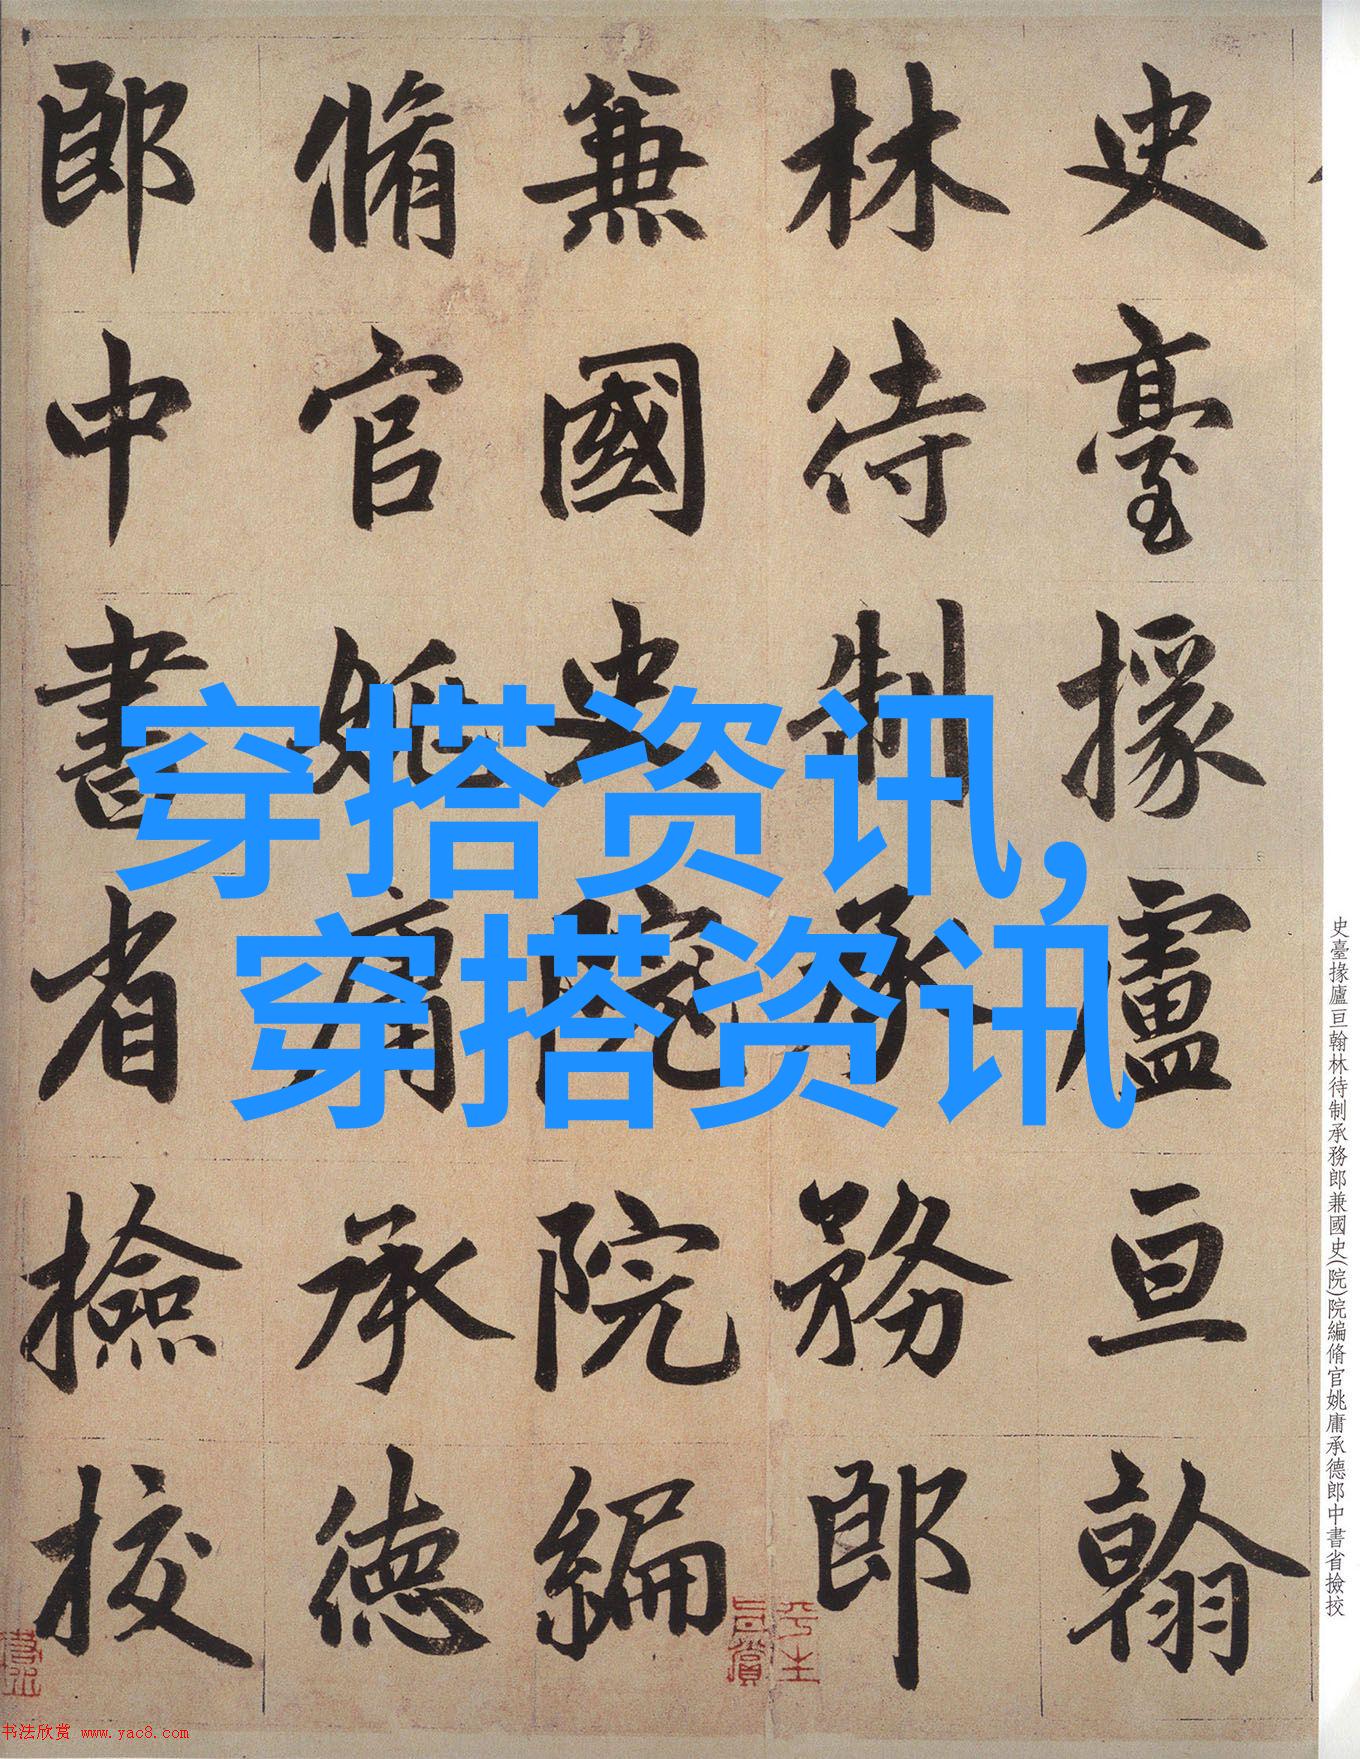 史臺掾盧亘翰
林待制承務郎
兼國史院院編
脩官姚庸承德
郎中書省撿挍
穿搭资讯,
穿搭资讯
史臺掾廬亘翰林待制承務郎兼國史(院)院編脩官姚庸承德郎中書省撿挍
书法欣赏 www.yac8.com